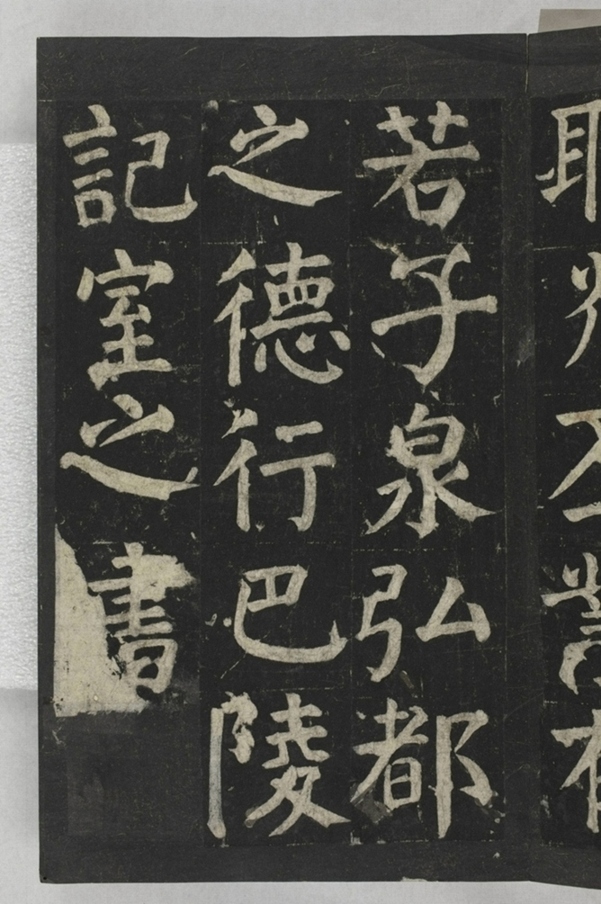 若子泉弘都
之德行巴陵
記室之書